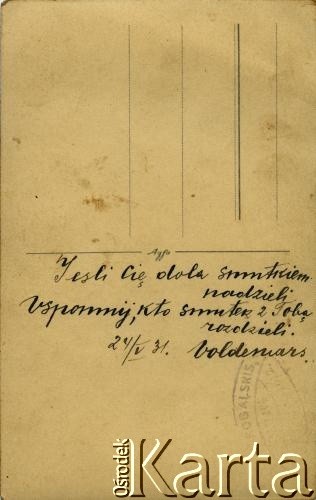 Agfa
Jeśli Cię dola smutkiem
nadzieli
Vspomnij, kto smutek z Tobą
rozdzieli.
24/V 31. Voldemars.
OGALSKIS
Ośrodek
Karta